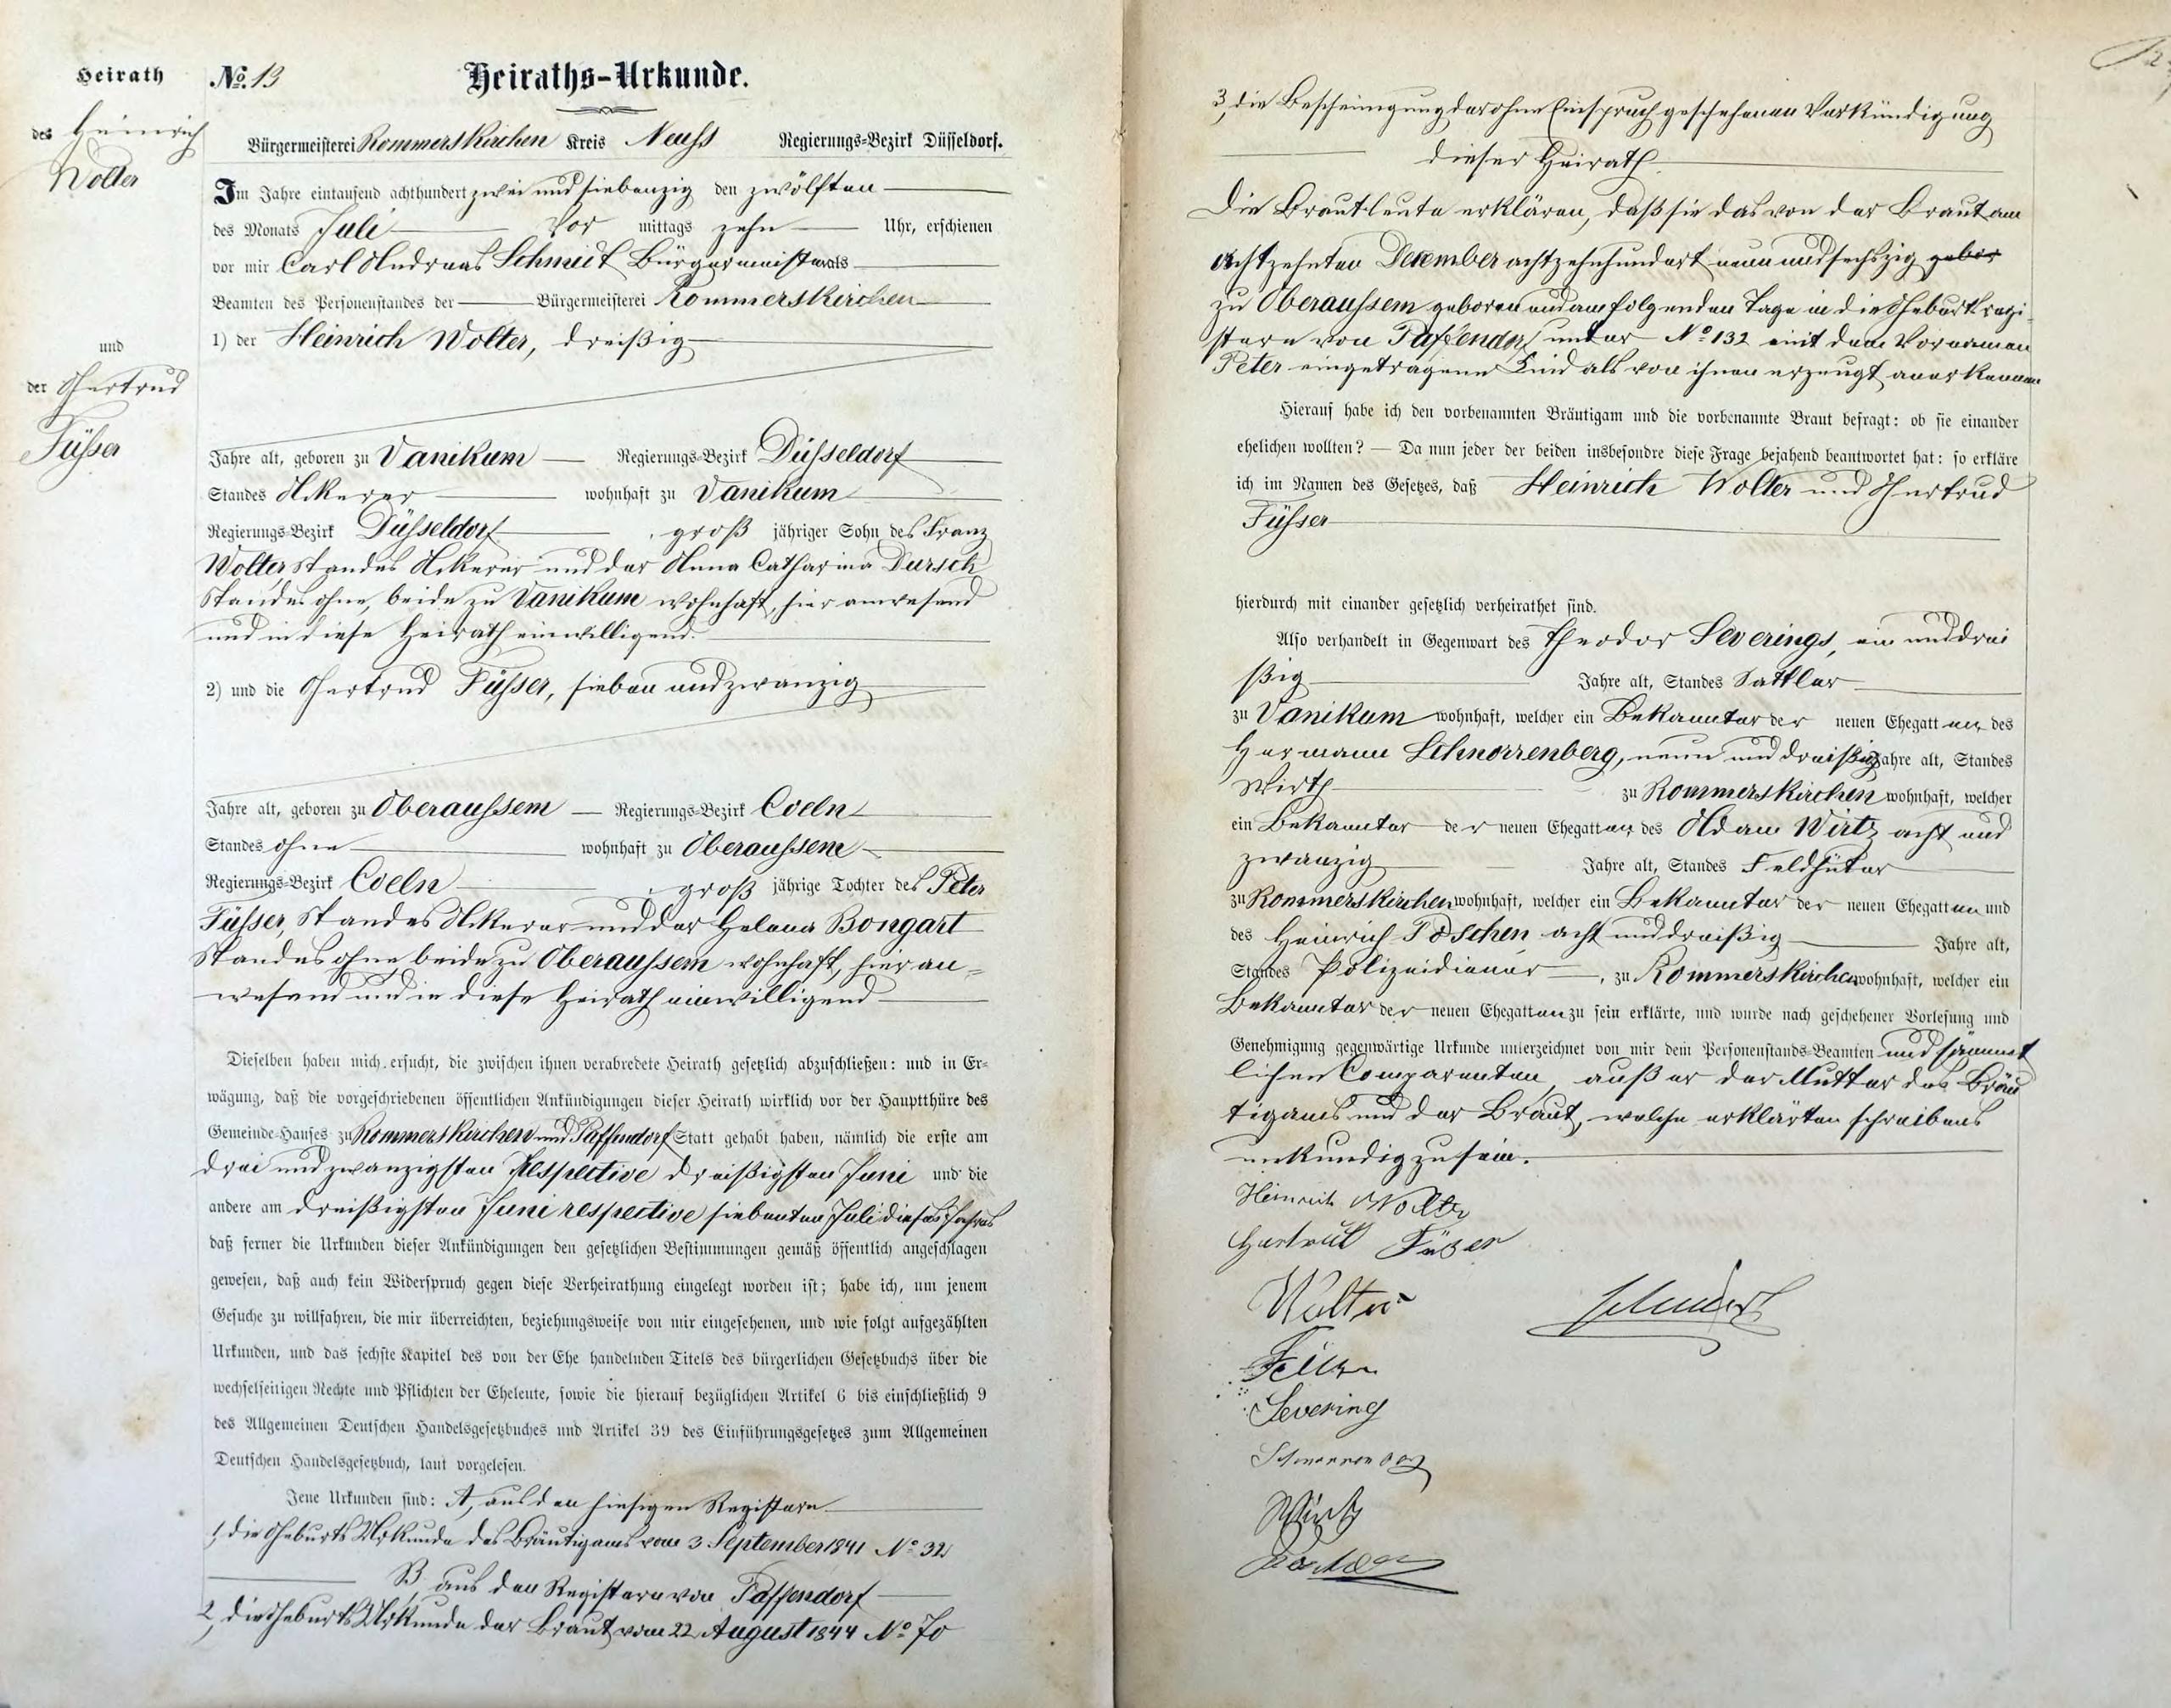 Heirath
des Heinrich
Wolter
und
der Gertrud
Füsser
No. 13 Heiraths-Urkunde.
Bürgermeisterei Rommerskirchen Kreis Neuss Regierungs-Bezirk Düsseldorf.
Im Jahre eintausend achthundert zwei und siebenzig den zwölften
des Monats Juli Vor mittags zehn Uhr, erschienen
vor mir Carl Andreas Schmidt Bürgermeister als
Beamten des Personenstandes der Bürgermeisterei Rommerskirchen
1) der Heinrich Wolter, dreißig
Jahre alt, geboren zu Vanikum Regierungs-Bezirk Düsseldorf
Standes Ackerer wohnhaft zu Vanikum
Regierungs-Bezirk Düsseldorf groß jähriger Sohn des Franz
Wolter, Standes Ackerer und der Anna Catharina Dursch
Standes ohne, beide zu Vanikum wohnhaft, hier anwesend
und in diese Heirath einwilligend.
2) und die Gertrud Füsser, sieben und zwanzig
Jahre alt, geboren zu Oberaussem Regierungs-Bezirk Coeln
Standes ohne wohnhaft zu Oberaussem
Regierungs-Bezirk Coeln groß jährige Tochter des Peter
Füsser, Standes Ackerer und der Helena Bongart
Standes ohne beide zu Oberaussem wohnhaft, hier an-
wesend und in diese Heirath einwilligend
Dieselben haben mich ersucht, die zwischen ihnen verabredete Heirath gesetzlich abzuschließen: und in Er-
wägung, daß die vorgeschriebenen öffentlichen Ankündigungen dieser Heirath wirklich vor der Hauptthüre des
Gemeinde-Hauses zu Rommerskirchen und Paffendorf Statt gehabt haben, nämlich die erste am
drei und zwanzigsten respective dreißigsten Juni und die
andere am dreißigsten Juni respective siebenten Juli dieses Jahres
daß ferner die Urkunden dieser Ankündigungen den gesetzlichen Bestimmungen gemäß öffentlich angeschlagen
gewesen, daß auch kein Widerspruch gegen diese Verheirathung eingelegt worden ist; habe ich, um jenem
Gesuche zu willfahren, die mir überreichten, beziehungsweise von mir eingesehenen, und wie folgt aufgezählten
Urkunden, und das sechste Kapitel des von der Ehe handelnden Titels des bürgerlichen Gesetzbuchs über die
wechselseitigen Rechte und Pflichten der Eheleute, sowie die hierauf bezüglichen Artikel 6 bis einschließlich 9
des Allgemeinen Deutschen Handelsgesetzbuches und Artikel 39 des Einführungsgesetzes zum Allgemeinen
Deutschen Handelsgesetzbuch, laut vorgelesen.
Jene Urkunden sind: A, aus den hiesigen Registern
1, die Geburts Urkunde des Bräutigams vom 3 September 1841 No 32
B, aus den Registern von Paffendorf
2, die Geburts Urkunde der Braut vom 22 August 1844 No 70
3, die Bescheinigung der ohne Einspruch geschehenen Verkündigung
dieser Heirath.
Die Brautleute erklären, daß sie das von der Braut am
achtzehnten December achtzehnhundert neun und sechszig gebor
zu Oberaussem geboren und am folgenden Tage in die Geburtsregi-
stern von Paffendorf unter No 132 mit dem Vornamen
Peter eingetragene Kind als von ihnen erzeugt anerkennen
Hierauf habe ich den vorbenannten Bräutigam und die vorbenannte Braut befragt: ob sie einander
ehelichen wollten? — Da nun jeder der beiden insbesondre diese Frage bejahend beantwortet hat: so erkläre
ich im Namen des Gesetzes, daß Heinrich Wolter und Gertrud
Füsser
hierdurch mit einander gesetzlich verheirathet sind.
Also verhandelt in Gegenwart des Theodor Severings, ein und drei
ßig Jahre alt, Standes Sattler
zu Vanikum wohnhaft, welcher ein Bekannter der neuen Ehegatten, des
Hermann Schnorrenberg, neun und dreißig Jahre alt, Standes
Wirth zu Rommerskirchen wohnhaft, welcher
ein Bekannter der neuen Ehegatten, des Adam Wirtz acht und
zwanzig Jahre alt, Standes Feldhüter
zu Rommerskirchen wohnhaft, welcher ein Bekannter der neuen Ehegatten und
des Heinrich Pöschen acht und dreißig Jahre alt,
Standes Polizeidiener, zu Rommerskirchen wohnhaft, welcher ein
Bekannter der neuen Ehegatten zu sein erklärte, und wurde nach geschehener Vorlesung und
Genehmigung gegenwärtige Urkunde unterzeichnet von mir dem Personenstands-Beamten und sämmt
lichen Comparenten, außer der Mutter des Bräu
tigams und der Braut, welche erklärten schreibens
unkundig zu sein.
Heinrich Wolter
Gertrud Füser
Wolter
Schmidt
Severing
Schnorrenberg
Wirtz